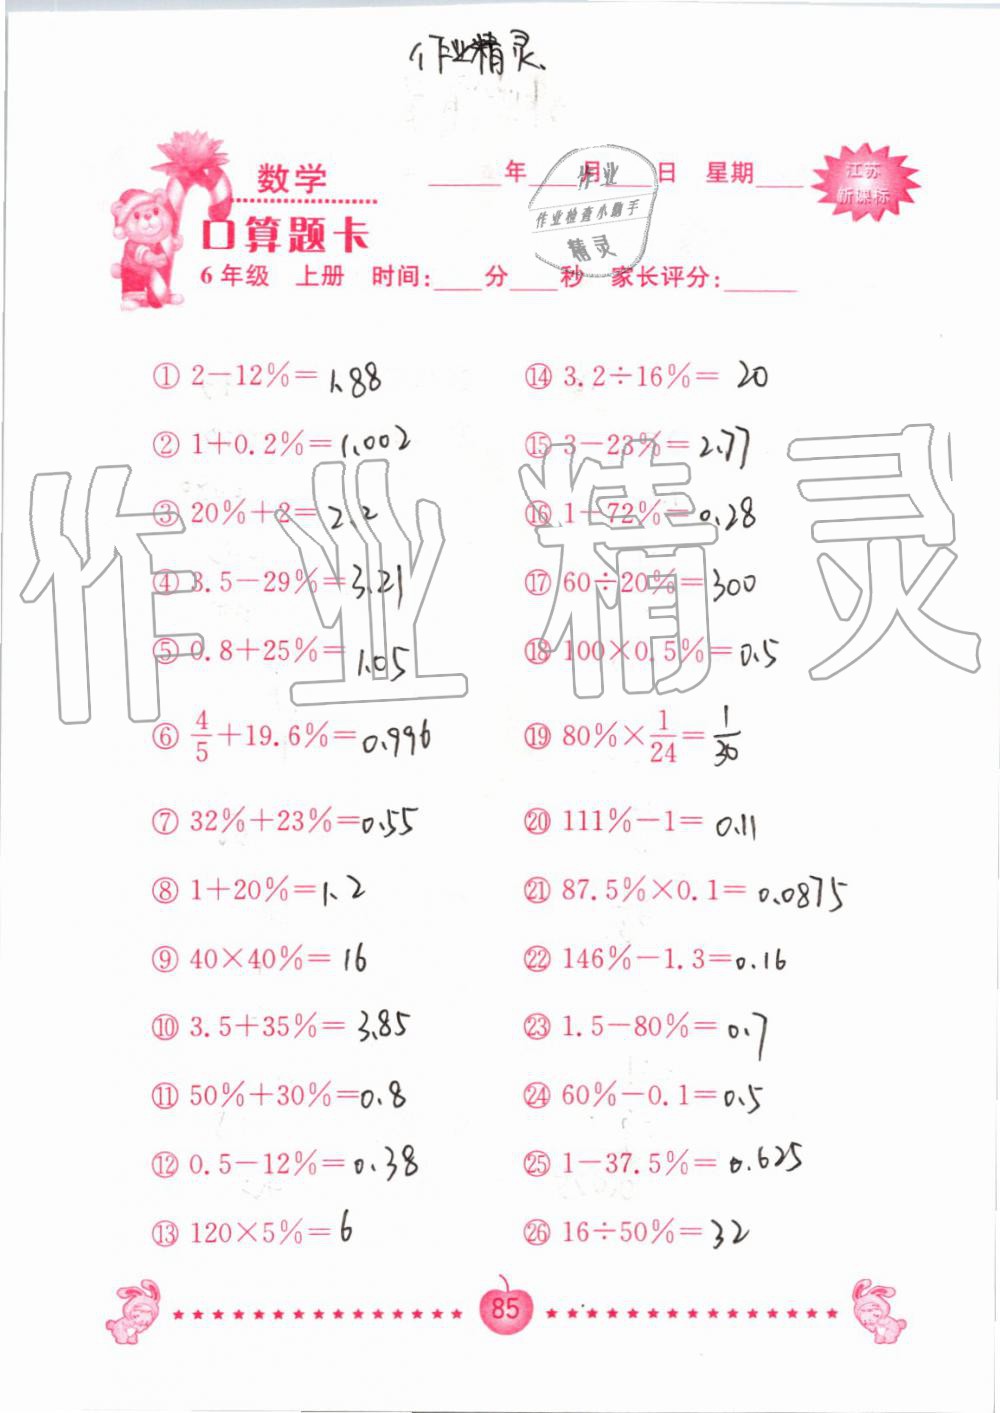 作业精灵
数学
____年____月____日 星期____
江苏
新课标
作业
作业检查小助手
精灵
口算题卡
6年级 上册 时间:____分____秒 家长评分:____
① 2-12%= 1.88
② 1+0.2%= 1.002
③ 20%+2= 2.2
④ 3.5-29%= 3.21
⑤ 0.8+25%= 1.05
⑥ 4/5+19.6%= 0.996
⑦ 32%+23%= 0.55
⑧ 1+20%= 1.2
⑨ 40×40%= 16
⑩ 3.5+35%= 3.85
⑪ 50%+30%= 0.8
⑫ 0.5-12%= 0.38
⑬ 120×5%= 6
⑭ 3.2÷16%= 20
⑮ 3-23%= 2.77
⑯ 1-72%= 0.28
⑰ 60÷20%= 300
⑱ 100×0.5%= 0.5
⑲ 80%×1/24= 1/30
⑳ 111%-1= 0.11
㉑ 87.5%×0.1= 0.0875
㉒ 146%-1.3= 0.16
㉓ 1.5-80%= 0.7
㉔ 60%-0.1= 0.5
㉕ 1-37.5%= 0.625
㉖ 16÷50%= 32
作业精灵
85